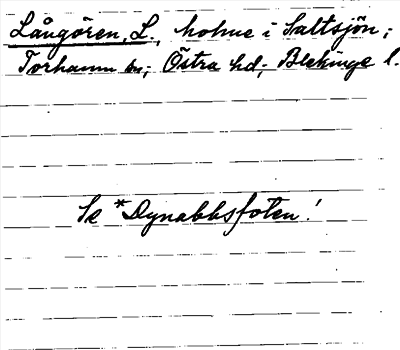 Långören, L., holme i Saltsjön;
Torhamn sn; Östra hd; Blekinge l.
Se *Dynabbsfoten!